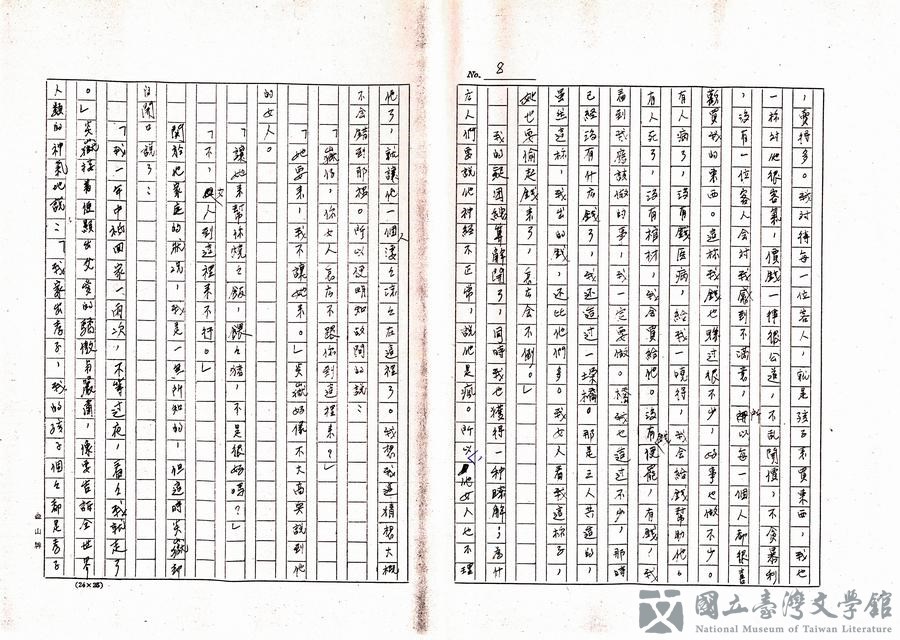 No. 8
，賣得多。我对待每一位客人，就是孩子来買東西，我也
一样对他很客氣，價錢一律很公道，不亂開價，不貪暴利
，沒有一位客人会对我感到不滿意，所以每一個人都很喜
歡買我的東西。這样我錢也賺过很不少，好事也做不少。
有人病了，沒有錢医病，給我一曉得，我会給錢幫助他。
有人死了，沒有棺材，我会買給他。沒有錢便罷，有錢，我
看到我應該做的事，我一定要做。橋我也造过不少，那時
已經沒有什么錢了，我还造过一壞橋。那是三人共造的，
虽然這样，我出的錢，还比他們多。我女人看我這样子，
她也要偷起錢来了，怎么会不倒。」
我的疑团總算解開了，同時我也獲得一种瞭解；为什
么人們要說他神經不正常，說他是瘋。所以他女人也不理
他了，就讓他一個人淒々涼々在這裡了。我想我這猜想大概
不会錯到那裡。所以便明知故問的說：
「嶽伯，你女人怎么不跟你到這裡来？」
「她要来，我不讓她来。」炎嶽好像不大高兴說到他
的女人。
「讓她来幫你燒々飯，餵々猪，不是很好嗎？」
「不，女人到這裡来不行。」
関於他家庭的狀况，我是一無所知的，但這時炎嶽却
自開口說了：
「我一年中祇回家一兩次，不等过夜，看々我就走了
。」炎嶽接着便顯出父愛的驕傲与嚴肅，像要告訴全世界
人類的神氣地說：「我家出孝子，我的孩子個々都是孝子
金山牌
(24×25)
國立臺灣文學館
National Museum of Taiwan Literature